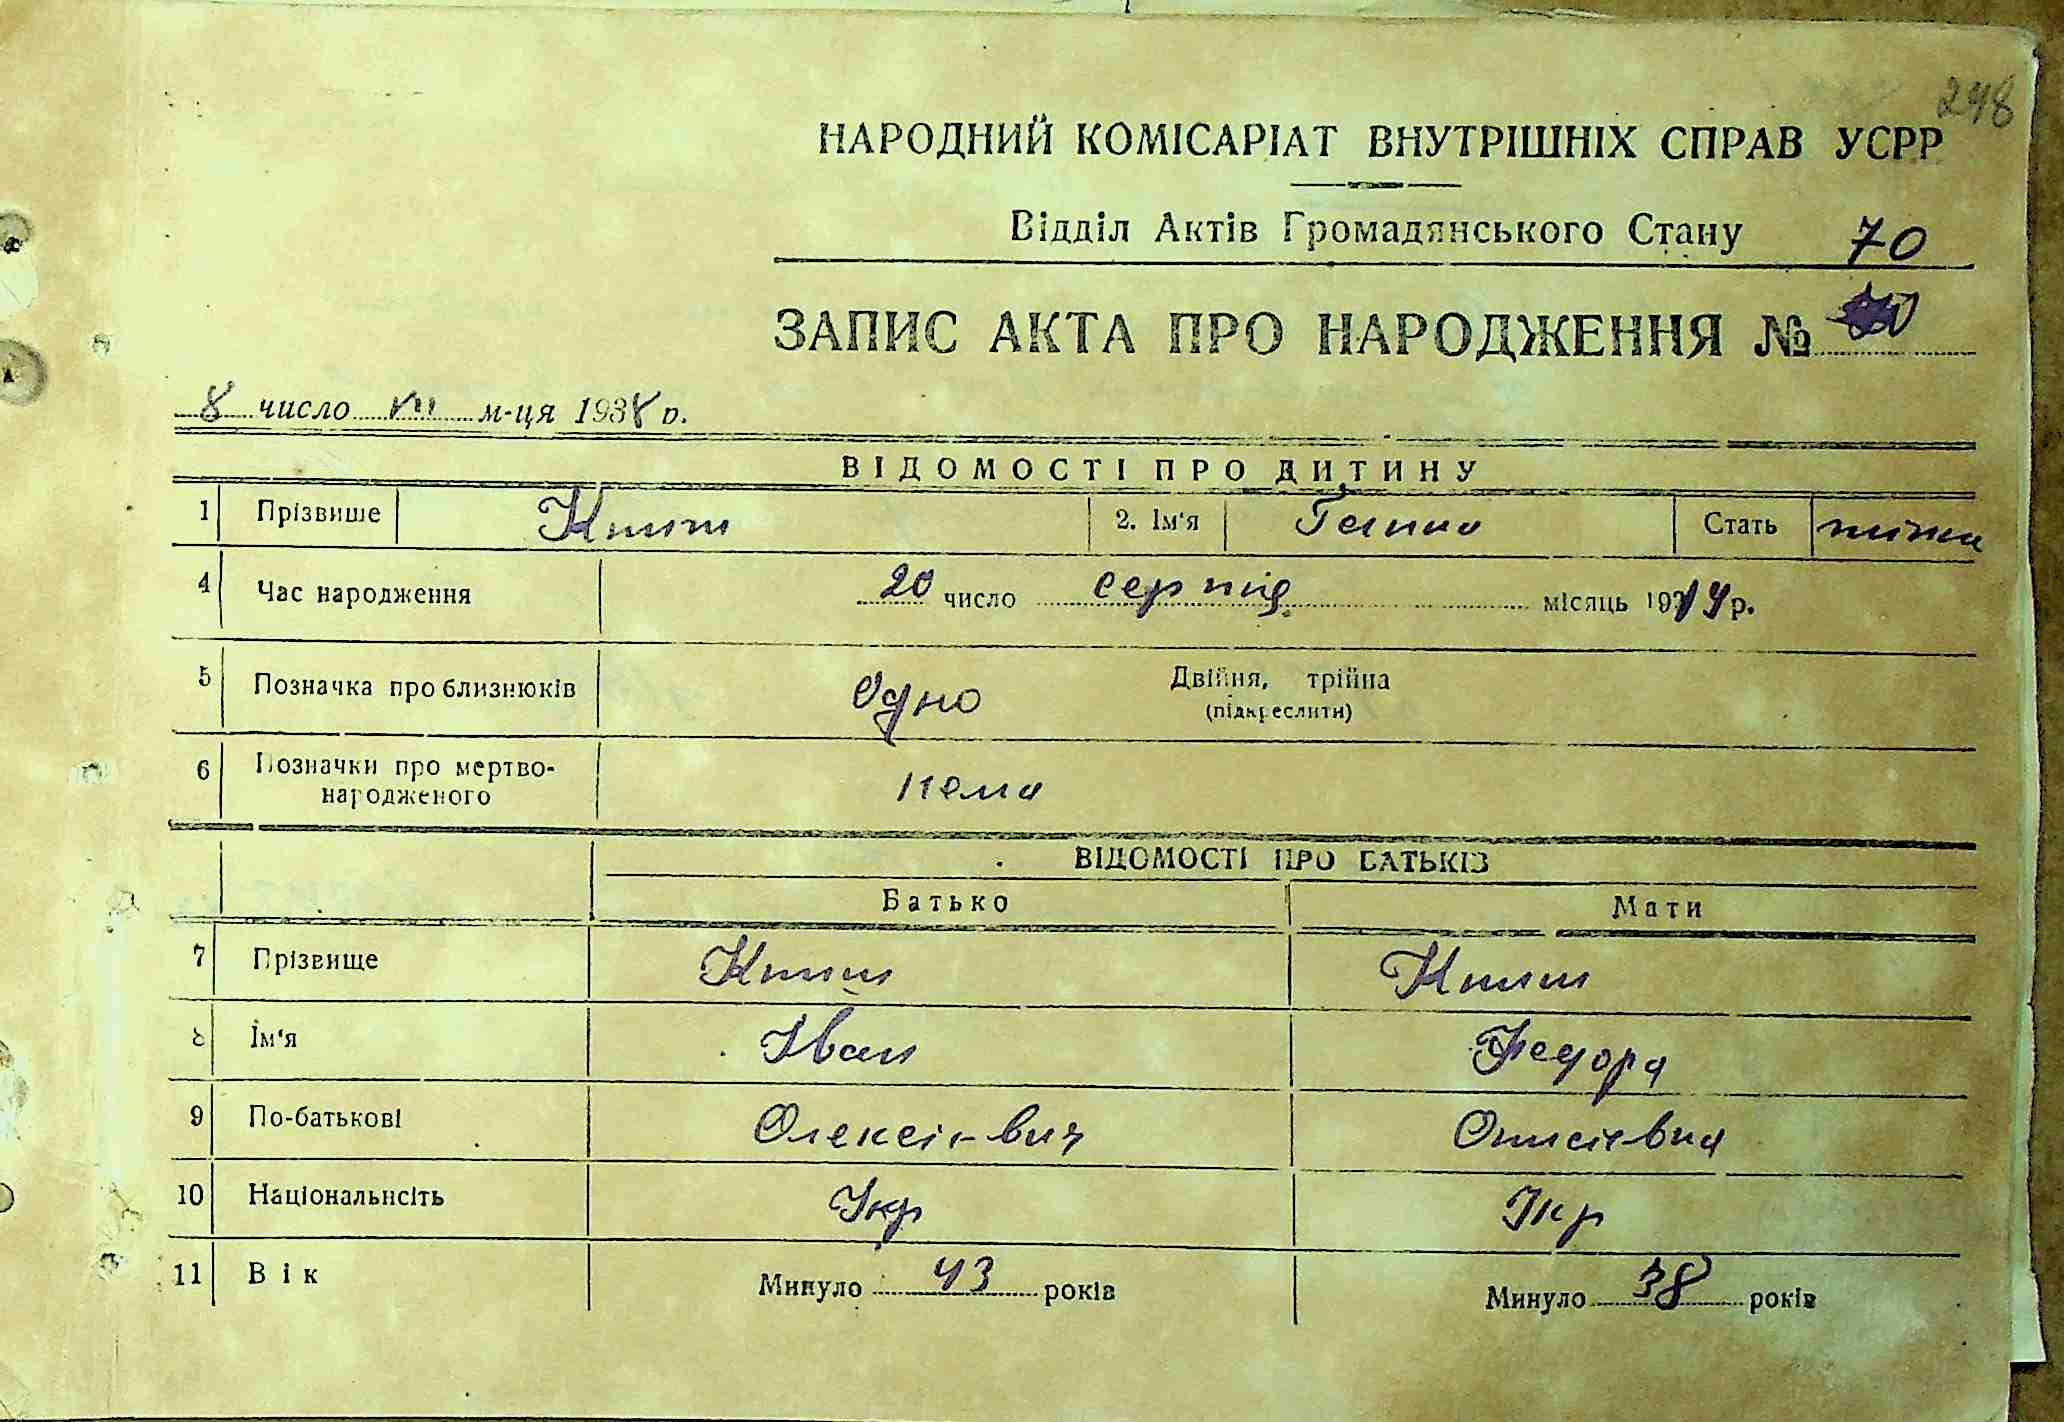 248
НАРОДНИЙ КОМІСАРІАТ ВНУТРІШНІХ СПРАВ УСРР
Відділ Актів Громадянського Стану 70
ЗАПИС АКТА ПРО НАРОДЖЕННЯ №
8 число VIII м-ця 1938 р.
ВІДОМОСТІ ПРО ДИТИНУ
1 Прізвище 2. Ім'я Ганна Стать жіноча
4 Час народження 20 число серпня місяць 1914 р.
5 Позначка про близнюків Одно Двійня, трійна
(підкреслити)
6 Позначки про мертво-
народженого нема
ВІДОМОСТІ ПРО БАТЬКІВ
Батько Мати
7 Прізвище
8 Ім'я Іван Федора
9 По-батькові Олексієвич
10 Національність Укр Укр
11 Вік Минуло 43 років Минуло 38 років